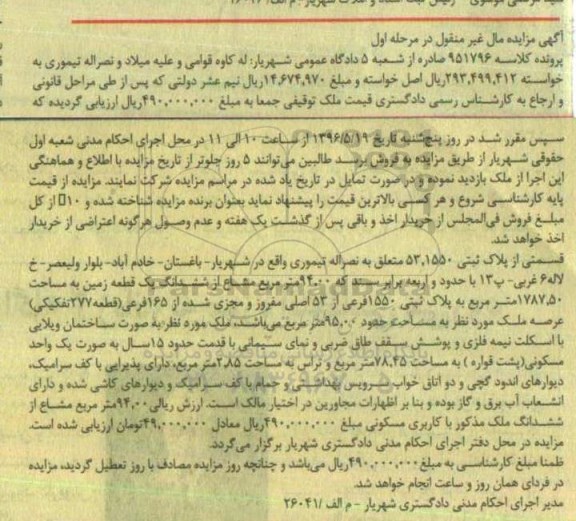 آگهی مزایده مال غیر منقول در مرحله اول
پرونده کلاسه ۹۵۱۷۹۶ صادره از شعبه ۵ دادگاه عمومی شهریار: له کاوه قوامی و علیه میلاد و نصراله تیموری به
خواسته ۲۹۳,۴۹۹,۴۱۲ریال اصل خواسته و مبلغ ۱۴,۶۷۴,۹۷۰ریال نیم عشر دولتی که پس از طی مراحل قانونی
و ارجاع به کارشناس رسمی دادگستری قیمت ملک توقیفی جمعا به مبلغ ۴۹۰,۰۰۰,۰۰۰ریال ارزیابی گردیده که
سپس مقرر شد در روز پنج‌شنبه تاریخ ۱۳۹۶/۵/۱۹ از ساعت ۱۰ الی ۱۱ در محل اجرای احکام مدنی شعبه اول
حقوقی شهریار از طریق مزایده به فروش برسد طالبین می‌توانند ۵ روز جلوتر از تاریخ مزایده با اطلاع و هماهنگی
این اجرا از ملک بازدید نموده و در صورت تمایل در تاریخ یاد شده در مراسم مزایده شرکت نمایند. مزایده از قیمت
پایه کارشناسی شروع و هر کسی بالاترین قیمت را پیشنهاد نماید بعنوان برنده مزایده شناخته شده و ۱۰ از کل
مبلغ فروش فی‌المجلس از خریدار اخذ و باقی پس از گذشت یک هفته و عدم وصول هرگونه اعتراضی از خریدار
اخذ خواهد شد.
قسمتی از پلاک ثبتی ۵۳,۱۵۵۰ متعلق به نصراله تیموری واقع در شهریار- باغستان- خادم آباد- بلوار ولیعصر- خ
لاله۶ غربی- پ۱۳ با حدود و اربعه برابر سند که ۹۴,۰۰متر مربع مشاع از ششدانگ یک قطعه زمین به مساحت
۱۷۸۷,۵۰متر مربع به پلاک ثبتی ۱۵۵۰فرعی از ۵۳ اصلی مفروز و مجزی شده از ۱۶۵فرعی(قطعه۲۷۷تفکیکی)
عرصه ملک مورد نظر به مساحت حدود ۹۵,۰۰متر مربع می‌باشد، ملک مورد نظر به صورت ساختمان ویلایی
با اسکلت نیمه فلزی و پوشش سقف طاق ضربی و نمای سیمانی با قدمت حدود ۱۵سال به صورت یک واحد
مسکونی(پشت قواره) به مساحت ۷۸,۴۵متر مربع و تراس به مساحت ۲,۸۵متر مربع، دارای پذیرایی با کف سرامیک،
دیوارهای اندود گچی و دو اتاق خواب، سرویس بهداشتی و حمام با کف سرامیک و دیوارهای کاشی شده و دارای
انشعاب آب برق و گاز بوده و بنا بر اظهارات مجاورین در اختیار مالک است. ارزش ریالی ۹۴,۰۰متر مربع مشاع از
ششدانگ ملک مذکور با کاربری مسکونی مبلغ ۴۹۰,۰۰۰,۰۰۰ریال معادل ۴۹,۰۰۰,۰۰۰تومان ارزیابی شده است.
مزایده در محل دفتر اجرای احکام مدنی دادگستری شهریار برگزار می‌گردد.
ظمنا مبلغ کارشناسی به مبلغ ۴۹۰,۰۰۰,۰۰۰ریال می‌باشد و چنانچه روز مزایده مصادف با روز تعطیل گردید، مزایده
در فردای همان روز و ساعت انجام خواهد شد.
مدیر اجرای احکام مدنی دادگستری شهریار - م الف /۲۶۰۴۱